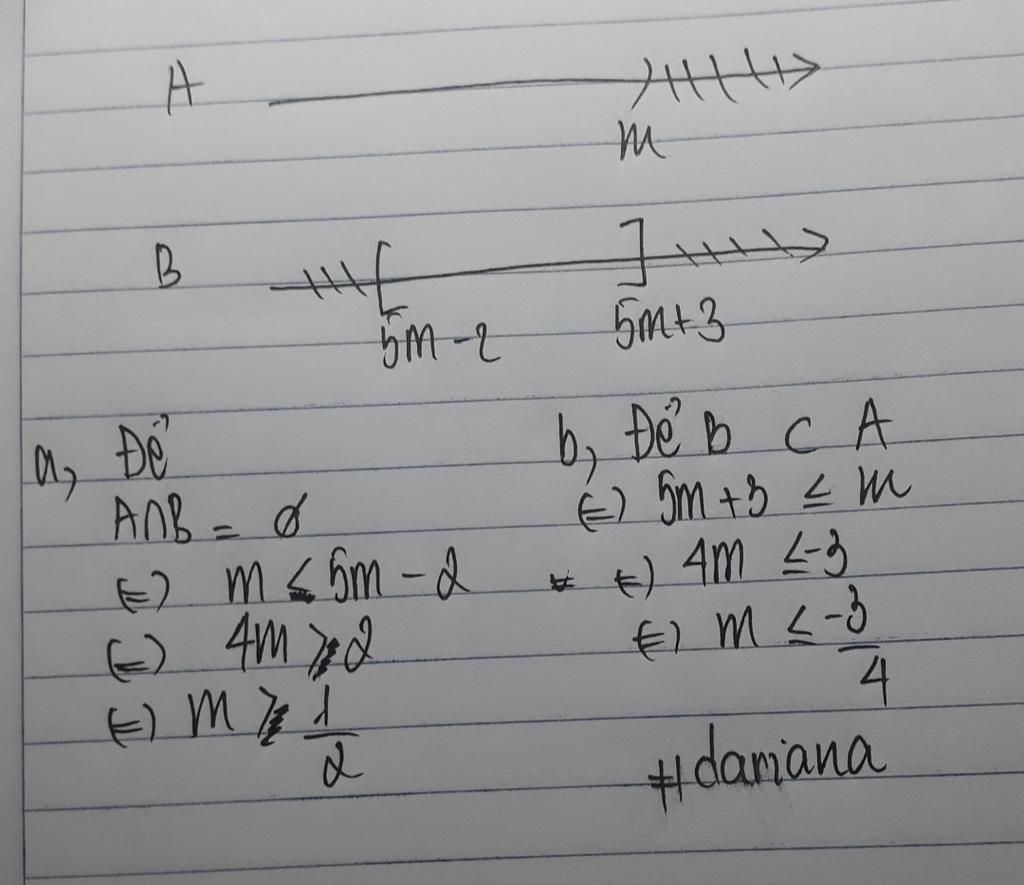 A
m
B
5m - 2
5m + 3
a, Để
A∩B = ∅
(=) m ≤ 5m - 2
(=) 4m ≥ 2
(=) m ≥ 1/2
b, Để B ⊂ A
(=) 5m + 3 ≤ m
(=) 4m ≤ -3
(=) m ≤ -3/4
#dariana